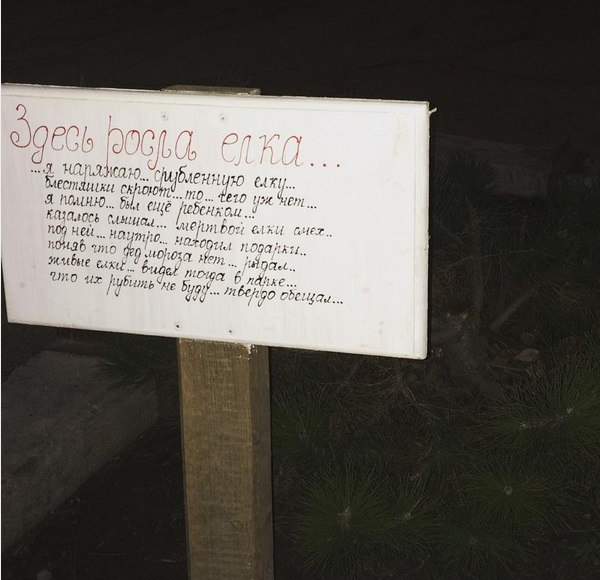 Здесь росла елка...
...я наряжаю... срубленную елку...
блестяшки скроют... то... чего уж нет...
я помню... был ещё ребенком...
казалось слышал... мертвой елки смех..
под ней... наутро... находил подарки..
поняв что дед мороза нет... рыдал..
живые елки... видел тогда в парке...
что их рубить не буду... твердо обещал...